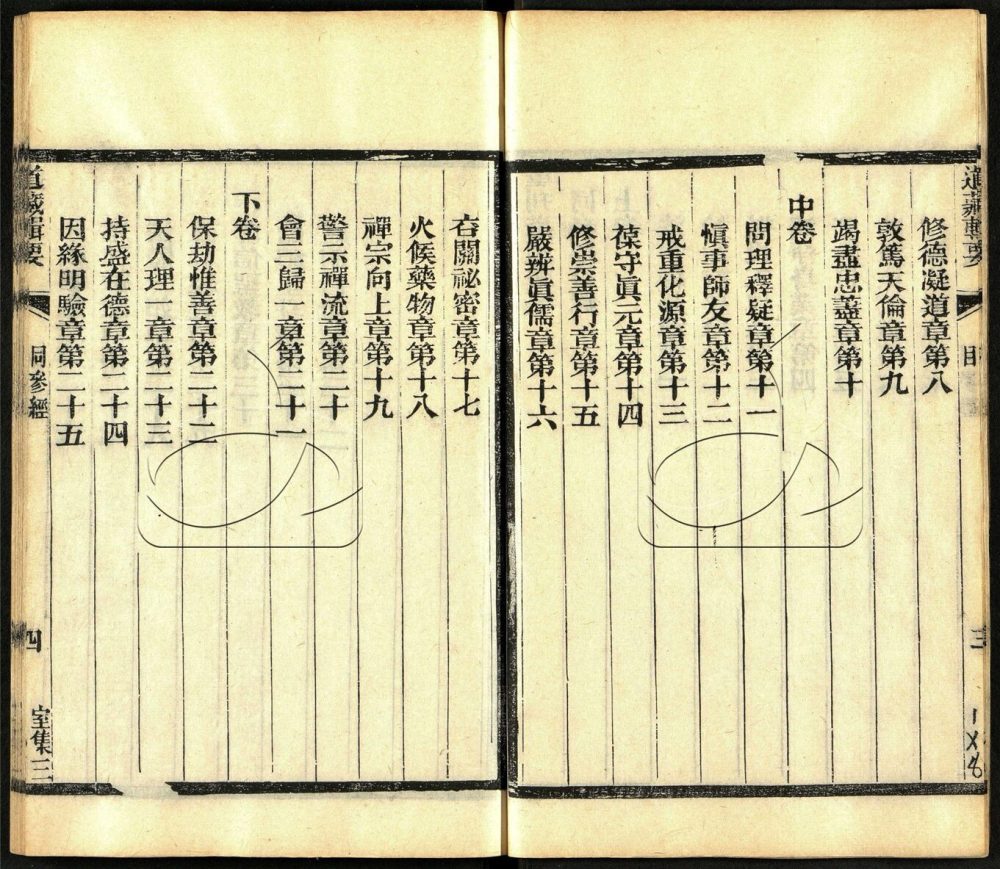 道藏輯要
目
三
1X8
修德凝道章第八
敦篤天倫章第九
竭盡忠藎章第十
中卷
問理釋疑章第十一
愼事師友章第十二
戒重化源章第十三
葆守眞元章第十四
修崇善行章第十五
嚴辨眞儒章第十六
杳關祕密章第十七
火候藥物章第十八
禪宗向上章第十九
警示禪流章第二十
會三歸一章第二十一
下卷
保劫惟善章第二十二
天人理一章第二十三
持盛在德章第二十四
因緣明驗章第二十五
道藏輯要
同參經
四
室集三